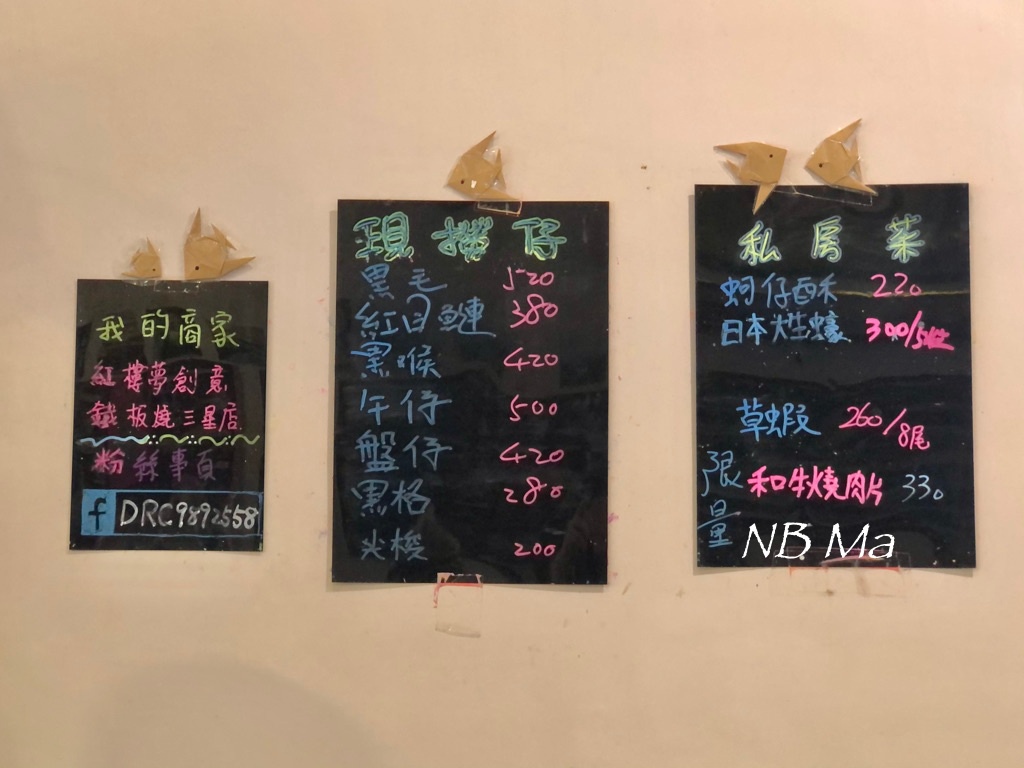 我的商家
紅樓夢創意
鐵板燒三星店
粉絲事頁
f DRC9892558
現撈仔
黑毛 520
紅目鰱 380
黑喉 420
午仔 500
盤仔 420
黑格 280
尖梭 200
私房菜
蚵仔酥 220
日本大生蠔 300/5粒
草蝦 260/8尾
限量 和牛燒肉片 330
NB Ma